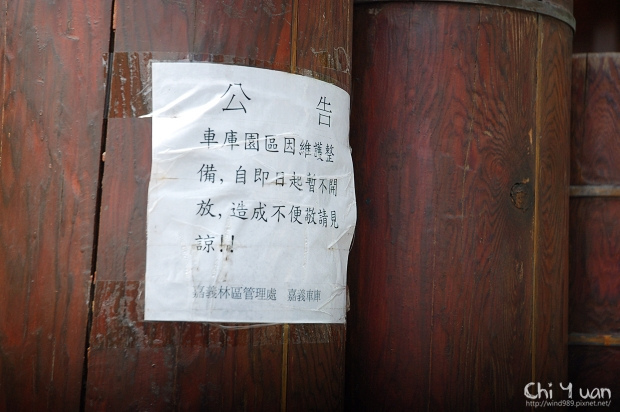 公告
車庫園區因維護整
備,自即日起暫不開
放,造成不便敬請見
諒!!
嘉義林區管理處 嘉義車庫
Chi Yuan
http://wind989.pixnet.net/